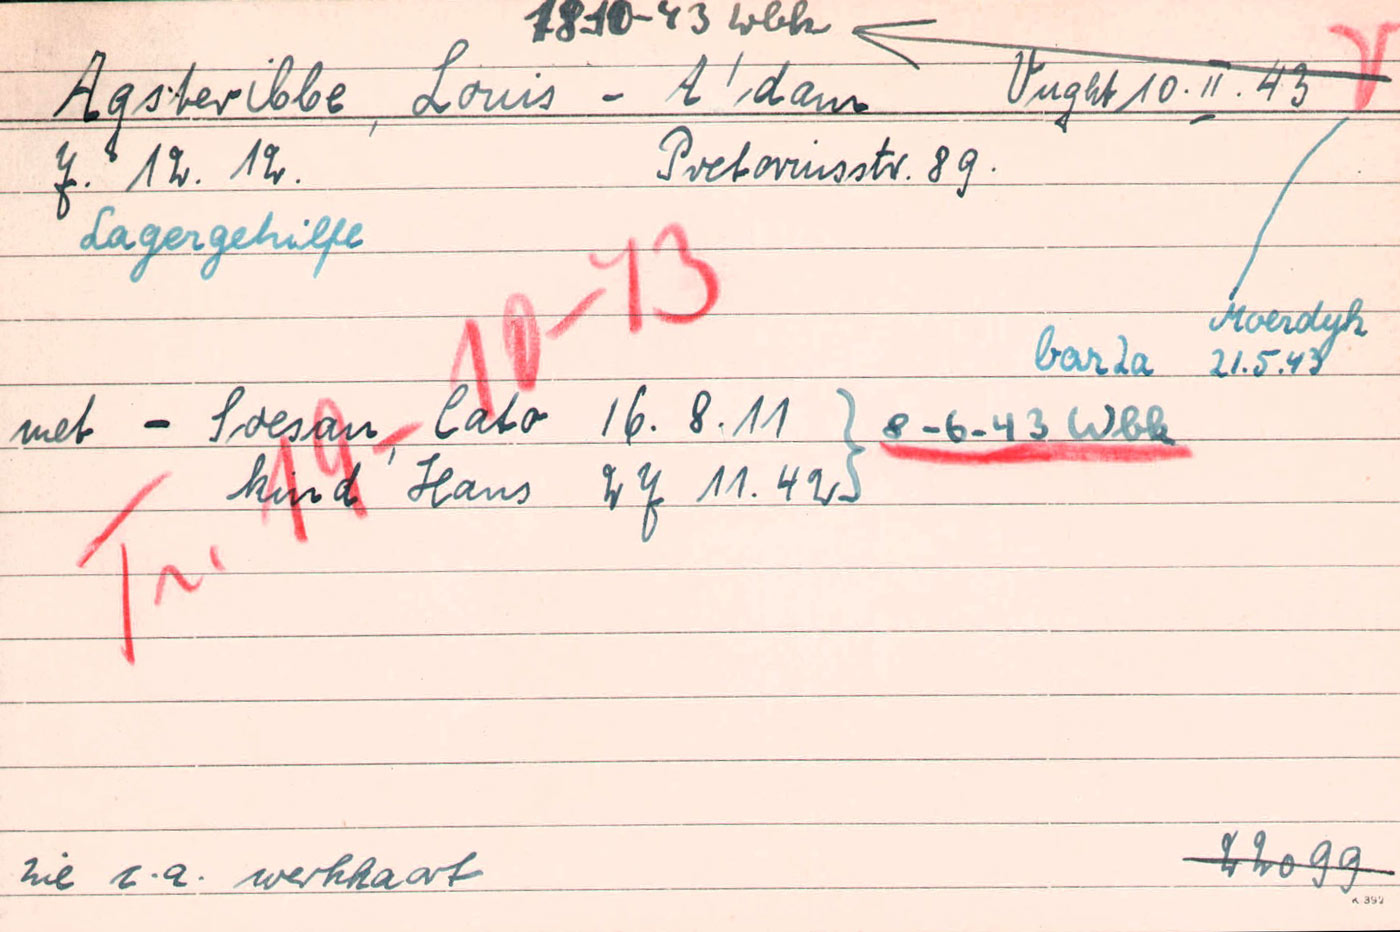 1810-43 Wbk
Agsteribbe, Louis - A'dam Vught 10.II.43
7. 12. 12. Pretoriusstr. 89.
Lagergehilfe
Tr. 19-10-43
Moerdyk
21.5.43
met - Soesan, Cato 16. 8. 11 8-6-43 Wbk
kind Hans 27 11. 42
zie z.a. werkkaart 22099
K 392